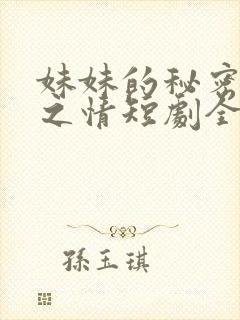 妹妹的秘密
之情短劇全
孫玉琪